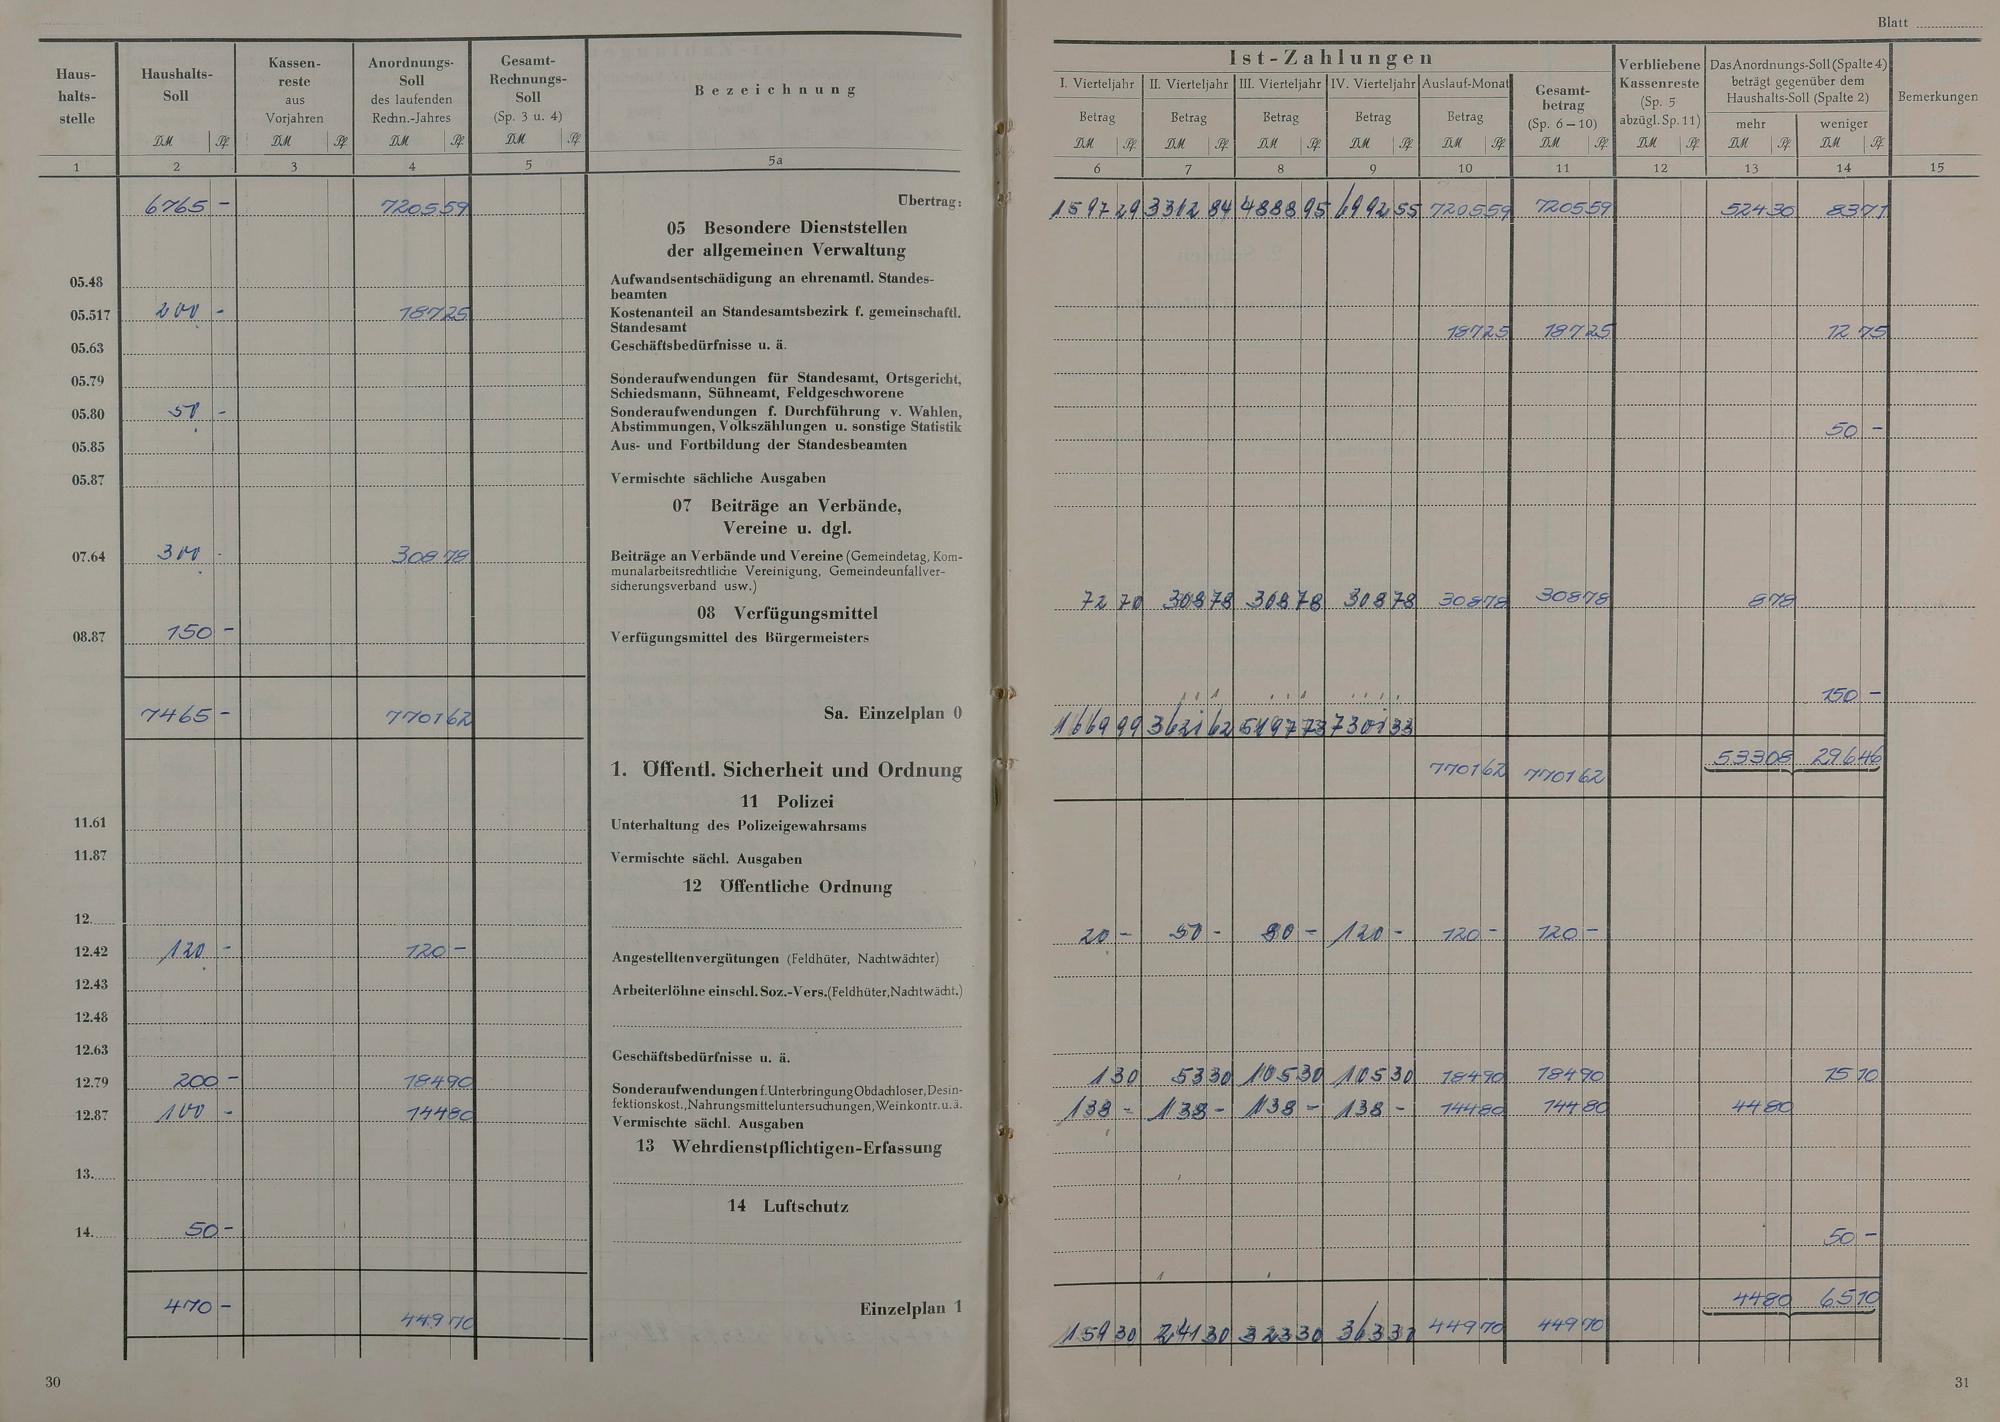 Blatt
Haus-
halts-
stelle
Haushalts-
Soll
DM Pf.
Kassen-
reste
aus
Vorjahren
DM Pf.
Anordnungs-
Soll
des laufenden
Rechn.-Jahres
DM Pf.
Gesamt-
Rechnungs-
Soll
(Sp. 3 u. 4)
DM Pf.
Bezeichnung
1 2 3 4 5 5a
6765 - 7205 59 Übertrag:
05 Besondere Dienststellen
der allgemeinen Verwaltung
05.48 Aufwandsentschädigung an ehrenamtl. Standes-
beamten
05.517 200 - 187 25 Kostenanteil an Standesamtsbezirk f. gemeinschaftl.
Standesamt
05.63 Geschäftsbedürfnisse u. ä.
05.79 Sonderaufwendungen für Standesamt, Ortsgericht,
Schiedsmann, Sühneamt, Feldgeschworene
05.80 50 - Sonderaufwendungen f. Durchführung v. Wahlen,
Abstimmungen, Volkszählungen u. sonstige Statistik
05.85 Aus- und Fortbildung der Standesbeamten
05.87 Vermischte sächliche Ausgaben
07 Beiträge an Verbände,
Vereine u. dgl.
07.64 300 - 308 78 Beiträge an Verbände und Vereine (Gemeindetag, Kom-
munalarbeitsrechtliche Vereinigung, Gemeindeunfallver-
sicherungsverband usw.)
08 Verfügungsmittel
08.87 150 - Verfügungsmittel des Bürgermeisters
7465 - 7701 62 Sa. Einzelplan 0
1. Öffentl. Sicherheit und Ordnung
11 Polizei
11.61 Unterhaltung des Polizeigewahrsams
11.87 Vermischte sächl. Ausgaben
12 Öffentliche Ordnung
12.
12.42 120 - 120 - Angestelltenvergütungen (Feldhüter, Nachtwächter)
12.43 Arbeiterlöhne einschl. Soz.-Vers. (Feldhüter, Nachtwächt.)
12.48
12.63 Geschäftsbedürfnisse u. ä.
12.79 200 - 184 90 Sonderaufwendungen f. Unterbringung Obdachloser, Desin-
fektionskost., Nahrungsmitteluntersuchungen, Weinkontr. u. ä.
12.87 100 - 144 80 Vermischte sächl. Ausgaben
13 Wehrdienstpflichtigen-Erfassung
13.
14 Luftschutz
14. 50 -
470 - 449 70 Einzelplan 1
30
Ist-Zahlungen
I. Vierteljahr
Betrag
DM Pf.
II. Vierteljahr
Betrag
DM Pf.
III. Vierteljahr
Betrag
DM Pf.
IV. Vierteljahr
Betrag
DM Pf.
Auslauf-Monat
Betrag
DM Pf.
Gesamt-
betrag
(Sp. 6 – 10)
DM Pf.
Verbliebene
Kassenreste
(Sp. 5
abzügl. Sp. 11)
DM Pf.
Das Anordnungs-Soll (Spalte 4)
beträgt gegenüber dem
Haushalts-Soll (Spalte 2)
mehr weniger
DM Pf. DM Pf.
Bemerkungen
6 7 8 9 10 11 12 13 14 15
1597 29 3312 84 4888 95 6992 55 7205 59 7205 59 524 30 83 71
187 25 187 25 12 75
50 -
72 70 308 78 308 78 308 78 308 78 308 78 8 78
150 -
1669 99 3621 62 5197 73 7301 33
7701 62 7701 62 533 08 296 46
20 - 50 - 80 - 120 - 120 - 120 -
1 30 53 30 105 30 105 30 184 90 184 90 15 10
138 - 138 - 138 - 138 - 144 80 144 80 44 80
50 -
44 80 65 10
159 30 241 30 323 30 363 30 449 70 449 70
31